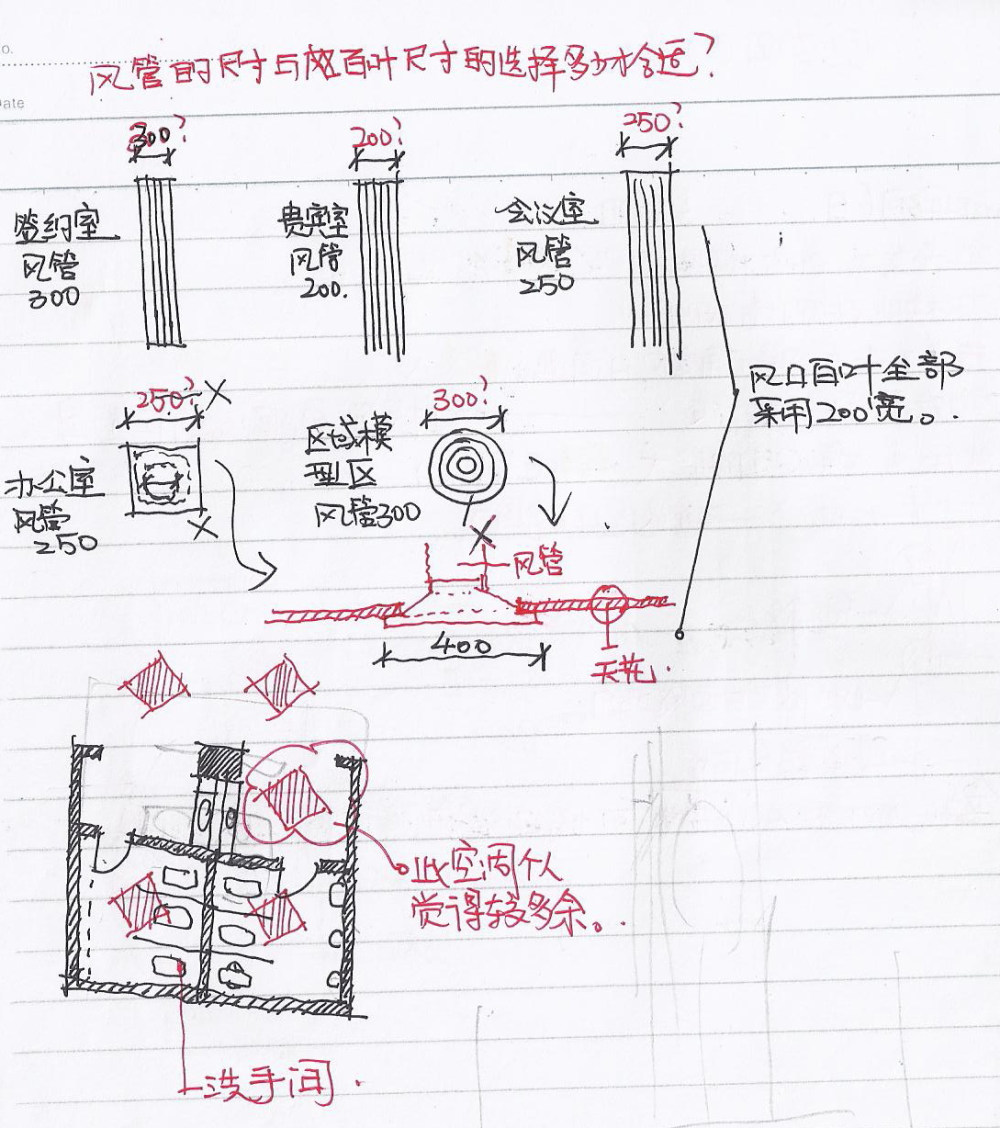 o.
Date
风管的尺寸与格百叶尺寸的选择多少才合适?
300?
200?
250?
签约室
风管
300
贵宾室
风管
200.
会议室
风管
250
风口百叶全部
采用200宽。
250?
办公室
风管
250
300?
区域模
型区
风管300
风管
400
天花.
此空调个人
觉得较多余。
洗手间.